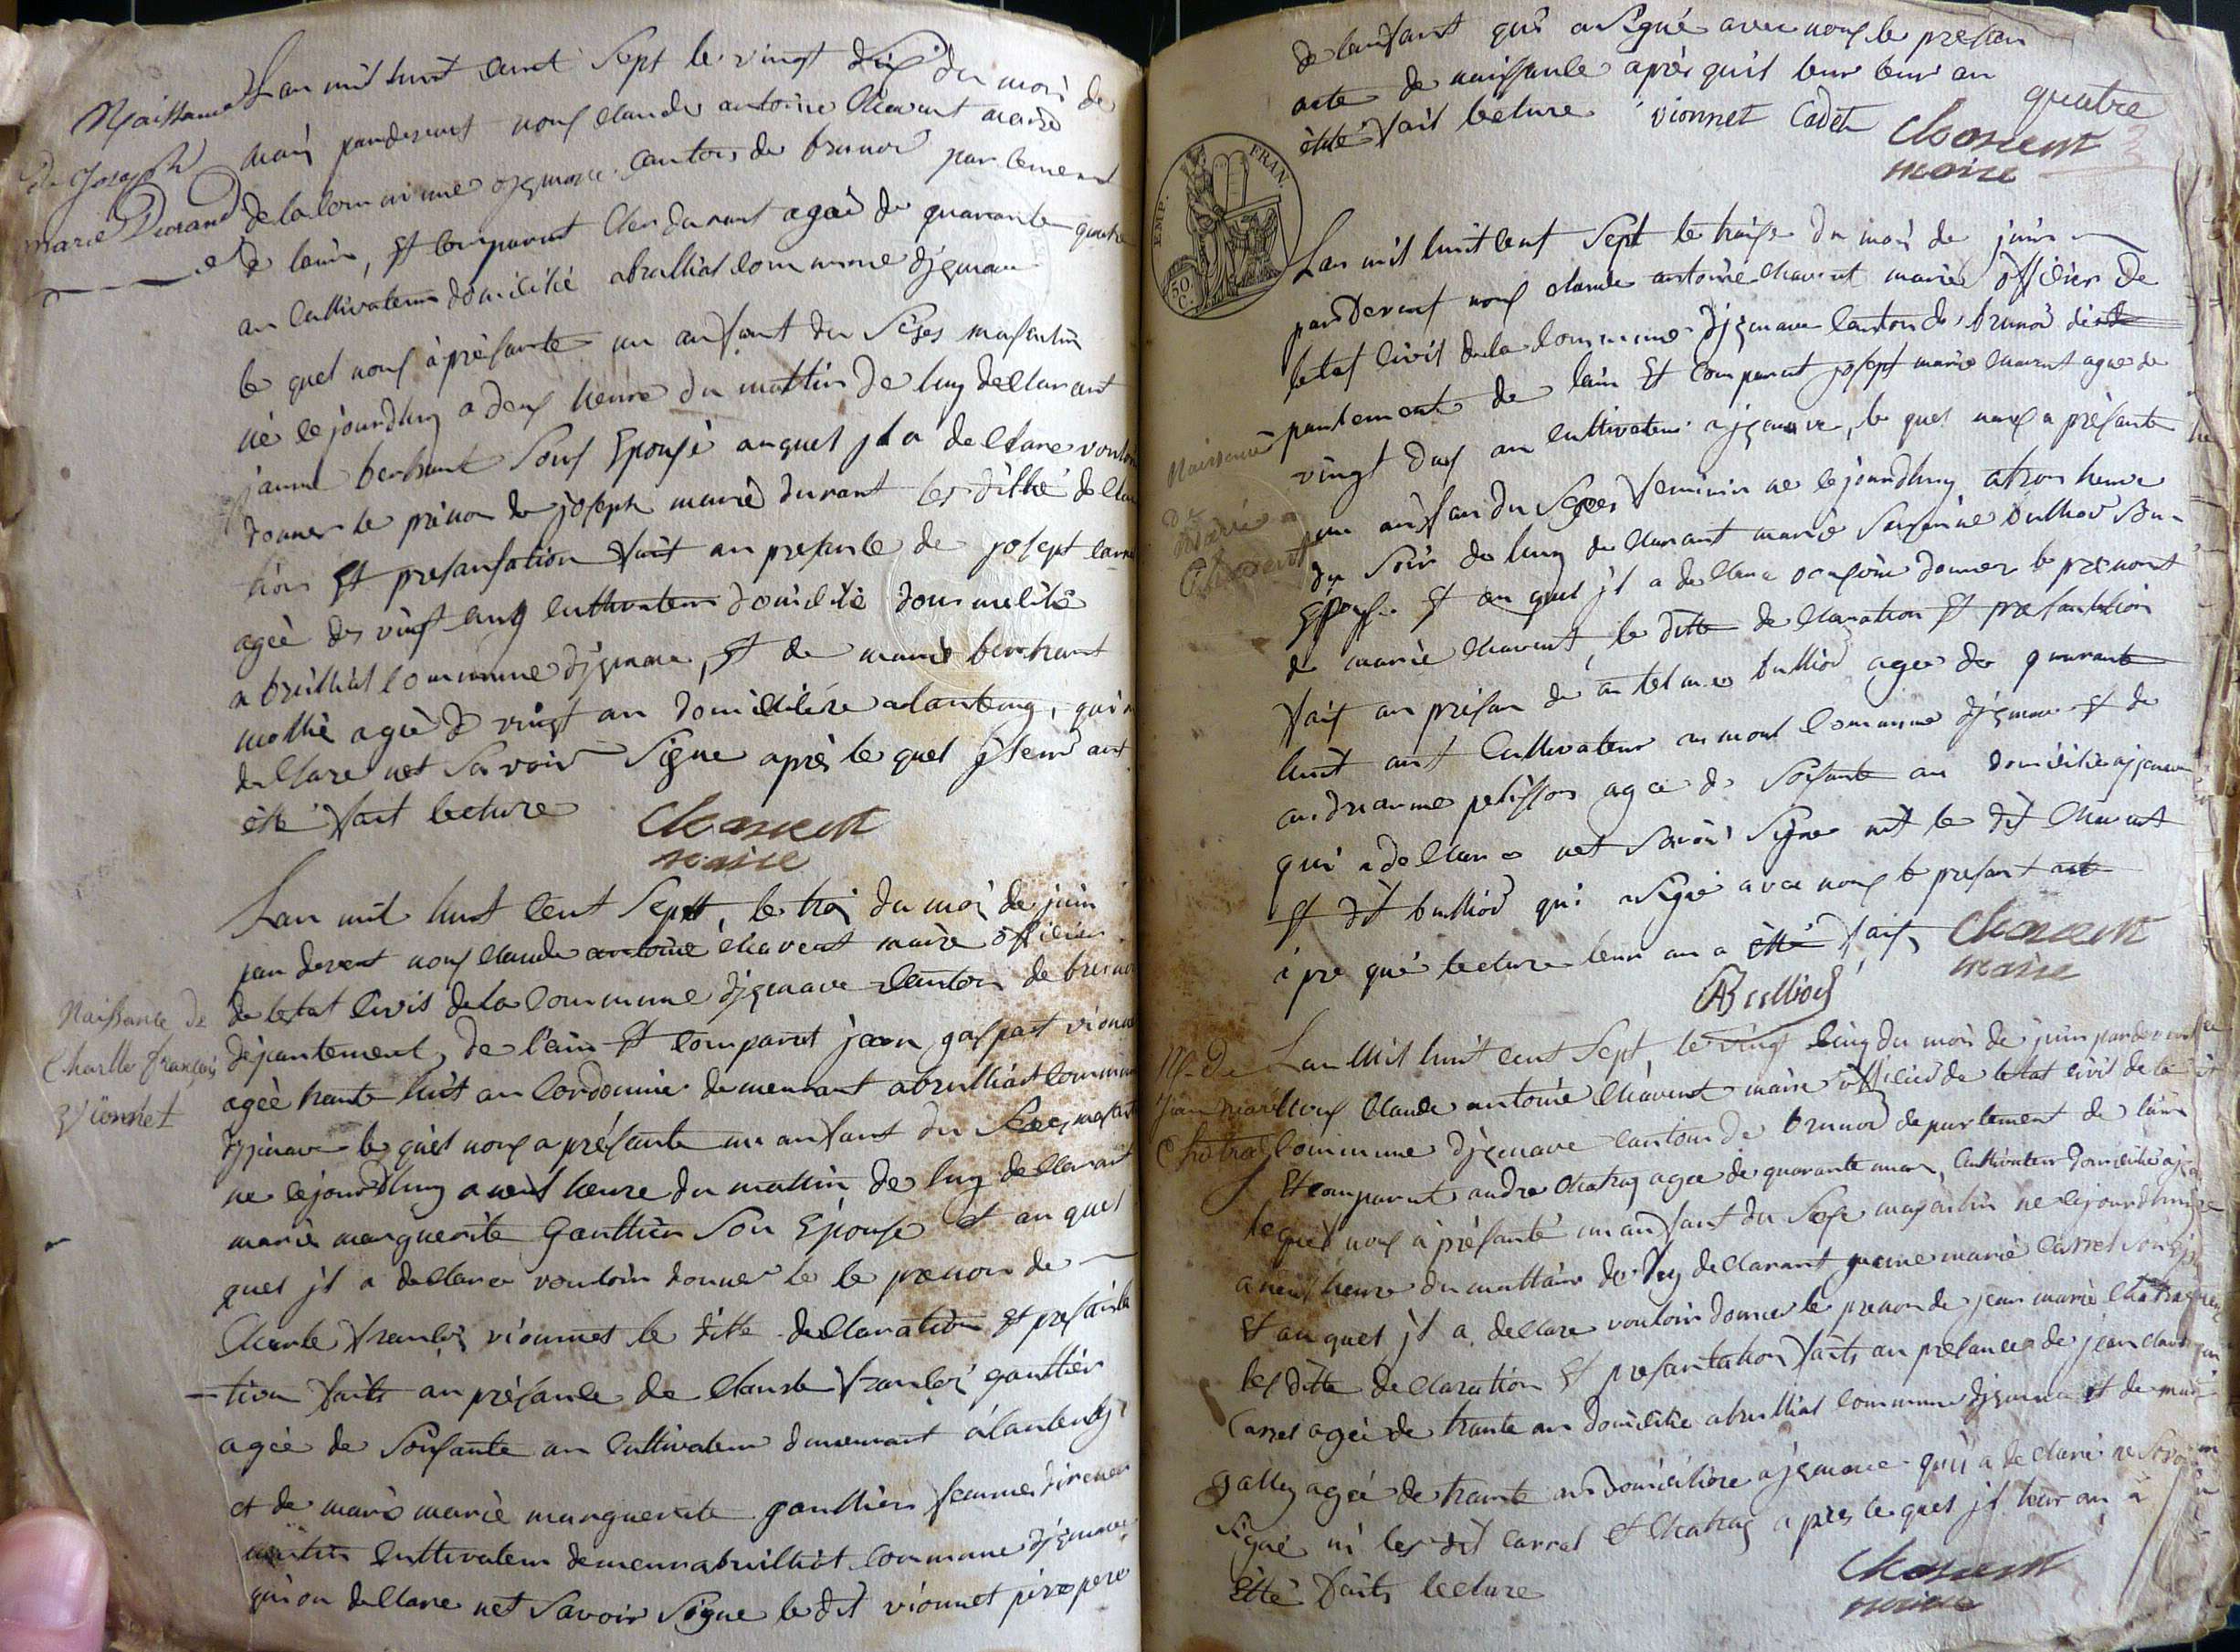 Naissance
de Joseph
marie Durand
Lan mil huit cent Sept le vingt dix du mois de
mais pardevant nous claude antoine Chavent maire
de la commune djgnave canton de brenod partement
de lain, Et comparut Durant ageè de quarante quatre
an Cultivateur domicilié abrulliat commune djgnave
le quel nous à présante un anfant du Séges masculin
né le jourdhuy a deux heure du mattin de luy declarant
janne berhant Sous Epousé auquel jl a declare vouloir
donner le prénon de joseph mariè durant les ditte decla
tion Et presansation fait an presance de josept carre
ageè de vingt cinq cultivateur domicilié domicilié
a brulliat commune djgnave, Et de mariè berhant
mollie ageè de vingt an domicilière alanteney, qui a
declare net Savoir Signe après le quel jl leur ant
étté fait lecture
Chavent
maire
Naissance de
Charlle françois
Vionnet
Lan mil huit cent Sept, le troi du moi de juin
par devent nous claude antoine chavent maire officier
de letat civil de la commune djgnave canton de brenod
département de l'ain Et comparut jean gaspart vionnet
ageè trante huit an cordonnie demeurant abrulliat commune
djgnave le quel nous a présante un anfant du Séxes masculi
ne lejourdhuy a neuf heure du mattin de luy declarant
mariè marguerite Gautthier Son Epouse et an quel
quel jl a declare vouloir donner le le prenon de
Charle francois vionnet le ditte declaration Et presanta
tion faits an présance de claude francois gautthier
ageè de Soisante an Cultivateur demeurant àlanteney
et de mariè marie marguerite gautthier femme
cultivateur demeurabrulliat commune djgnave
qui on declare net Savoir Signe le dit vionnet père pere
de lanfant qui a Signé avec nous le presan
acte de naissance après quil leur leur an
étté fait lecture vionnet Cadet
quatre
3
Chavent
maire
EMP. FRAN.
50 C.
Naissance
De
Marie
Chavent
Lan mil huit cent Sept le traise du mois de juin
par Devent nous claude antoine chavent maire officier de
letat civil de la commune djgnave canton de brenod de
partement de lain Et comparut josept marie chavent ageè de
vingt dux an cultivateur ajgnave, le quel nous a présante
un anfan du Sexes feminin ne lejourdhuy atrois heure
du Soir de luy declarant marie bulliod Son
Epouse Et an quel jl a declare vouloir donner le prenont
de marie chavent, le ditte declaration Et presantation
fait an présan de antelme bulliod ageè de quarante
huit ant Cultivateur commune djgnave Et de
andrianne pelisson ageè de Soisante an domicilie ajgnave
qui a declare net Savoir Signe nit le dit Chavent
Et dit bulliod qui a Signé avec nous le present acte
apre que lecture leur an a étté fait,
Chavent
maire
ABulliod
N. De
jean marie
Chatrag
Lan Mil huit cent Sept, le vingt Cinq du mois de juin pardevant
nous Claude antoine Chavent maire officier de letat civil de la
commune djgnave canton de brenod departement de lain
Et comparut andre chatrag ageè de quarante un an, Cultivateur domicilie ajg
le quel nous à présanté un anfant du Sexe masculin ne lejourdhuy
a neuf heure du mattain de luy declarant marie carrel son Ep
Et au quel jl a declare vouloir donner le prenon de jean marie Chatrag
les ditte declaration Et presantation faits an presance de jean claude
Carrel ageè de trante an domicilie abrulliat commune djgnave et de marie
galley ageè de trante an domicilière ajgnave qui à declaré ne Savoir
Signé ni les dit carrel Et chatrag apres le quel jl leur an à
étté faits lecture
Chavent
maire